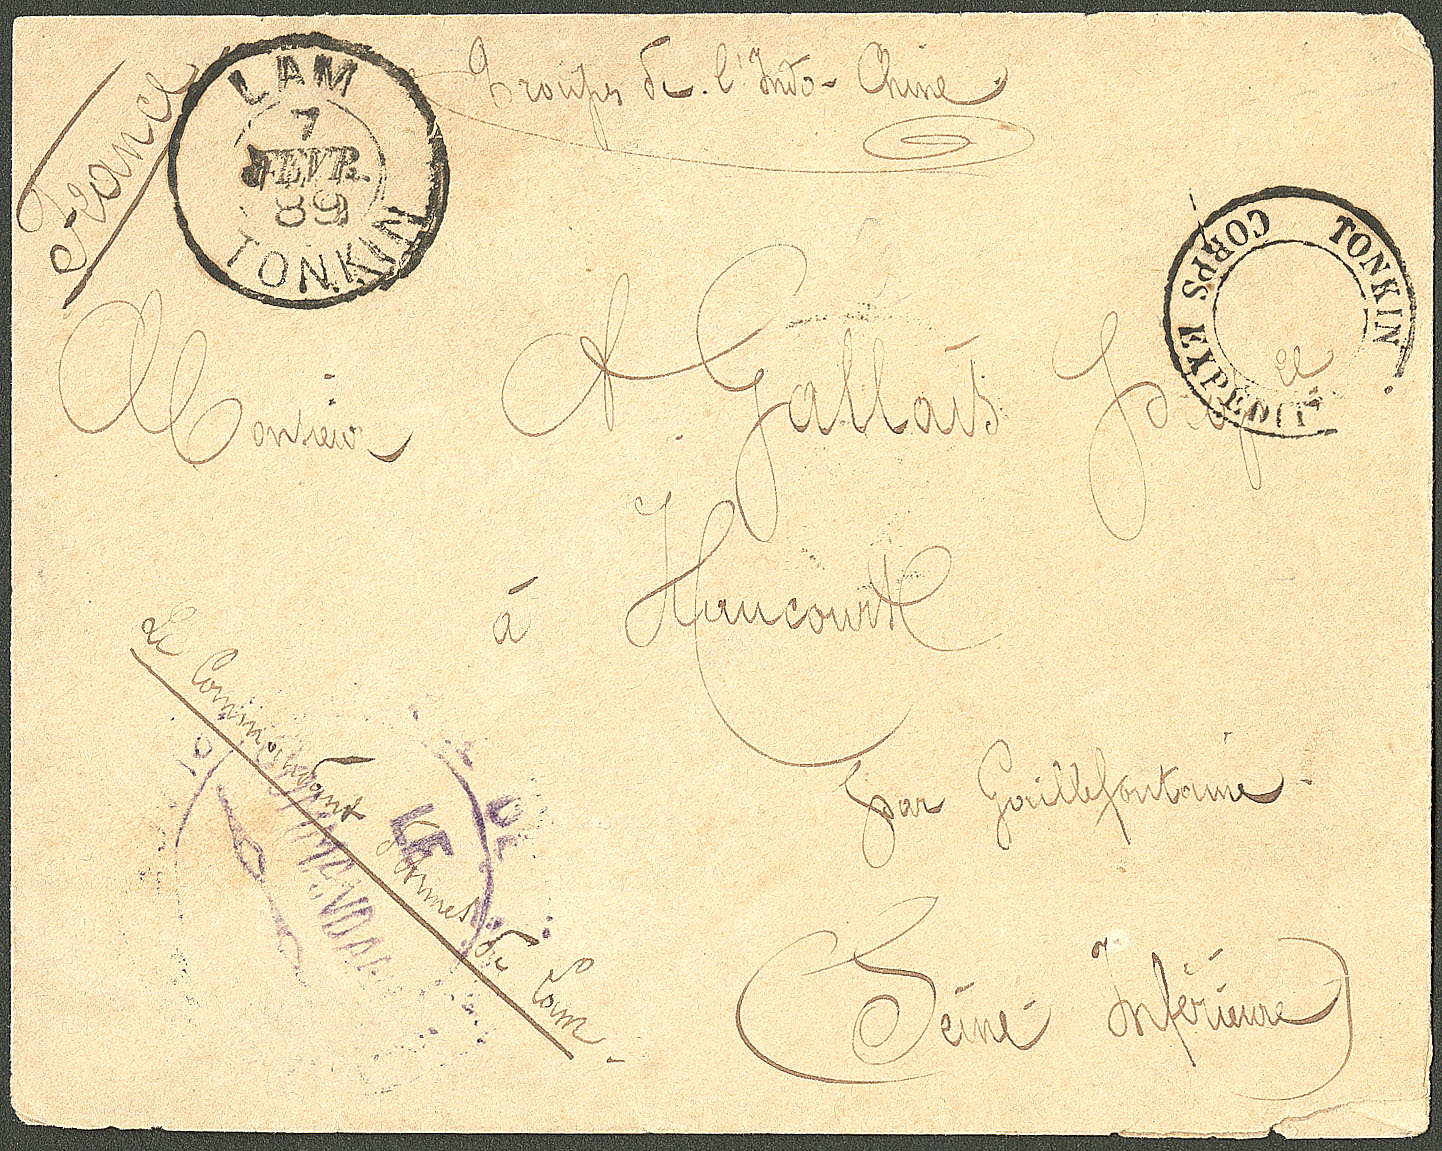 France
LAM
7
FEVR.
89
TONKIN
Troupes de l'Indo-Chine
CORPS EXPÉDIT
TONKIN
Monsieur A. Gallais
à Haucourt
par Gaillefontaine
(Seine Inférieure)
Le Commandant d'Armes de Lam
LE
DE